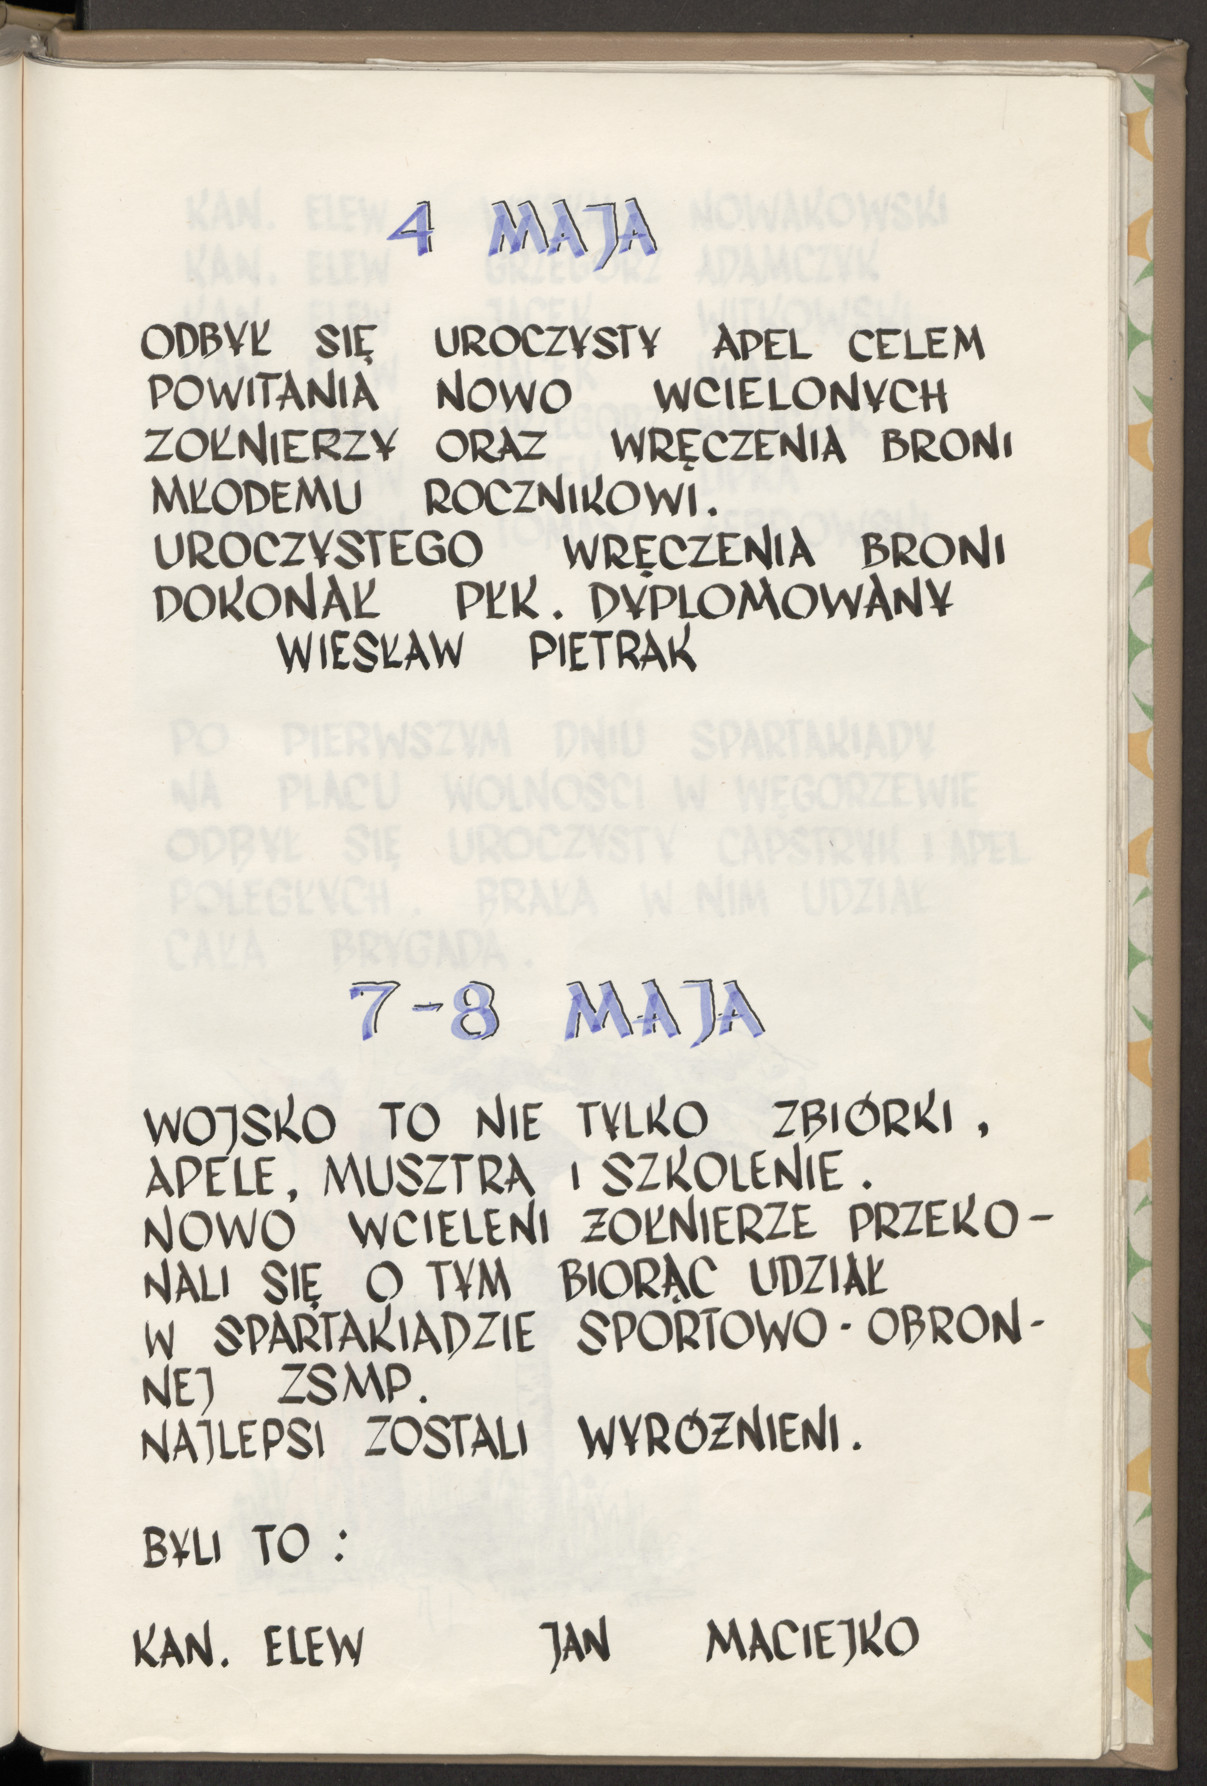 4 MAJA
ODBYŁ SIĘ UROCZYSTY APEL CELEM
POWITANIA NOWO WCIELONYCH
ZOŁNIERZY ORAZ WRĘCZENIA BRONI
MŁODEMU ROCZNIKOWI.
UROCZYSTEGO WRĘCZENIA BRONI
DOKONAŁ PŁK. DYPLOMOWANY
WIESŁAW PIETRAK
7-8 MAJA
WOJSKO TO NIE TYLKO ZBIÓRKI,
APELE, MUSZTRA I SZKOLENIE.
NOWO WCIELENI ŻOŁNIERZE PRZEKO-
NALI SIĘ O TYM BIORĄC UDZIAŁ
W SPARTAKIADZIE SPORTOWO-OBRON-
NEJ ZSMP.
NAJLEPSI ZOSTALI WYRÓŻNIENI.
BYLI TO :
KAN. ELEW JAN MACIEJKO